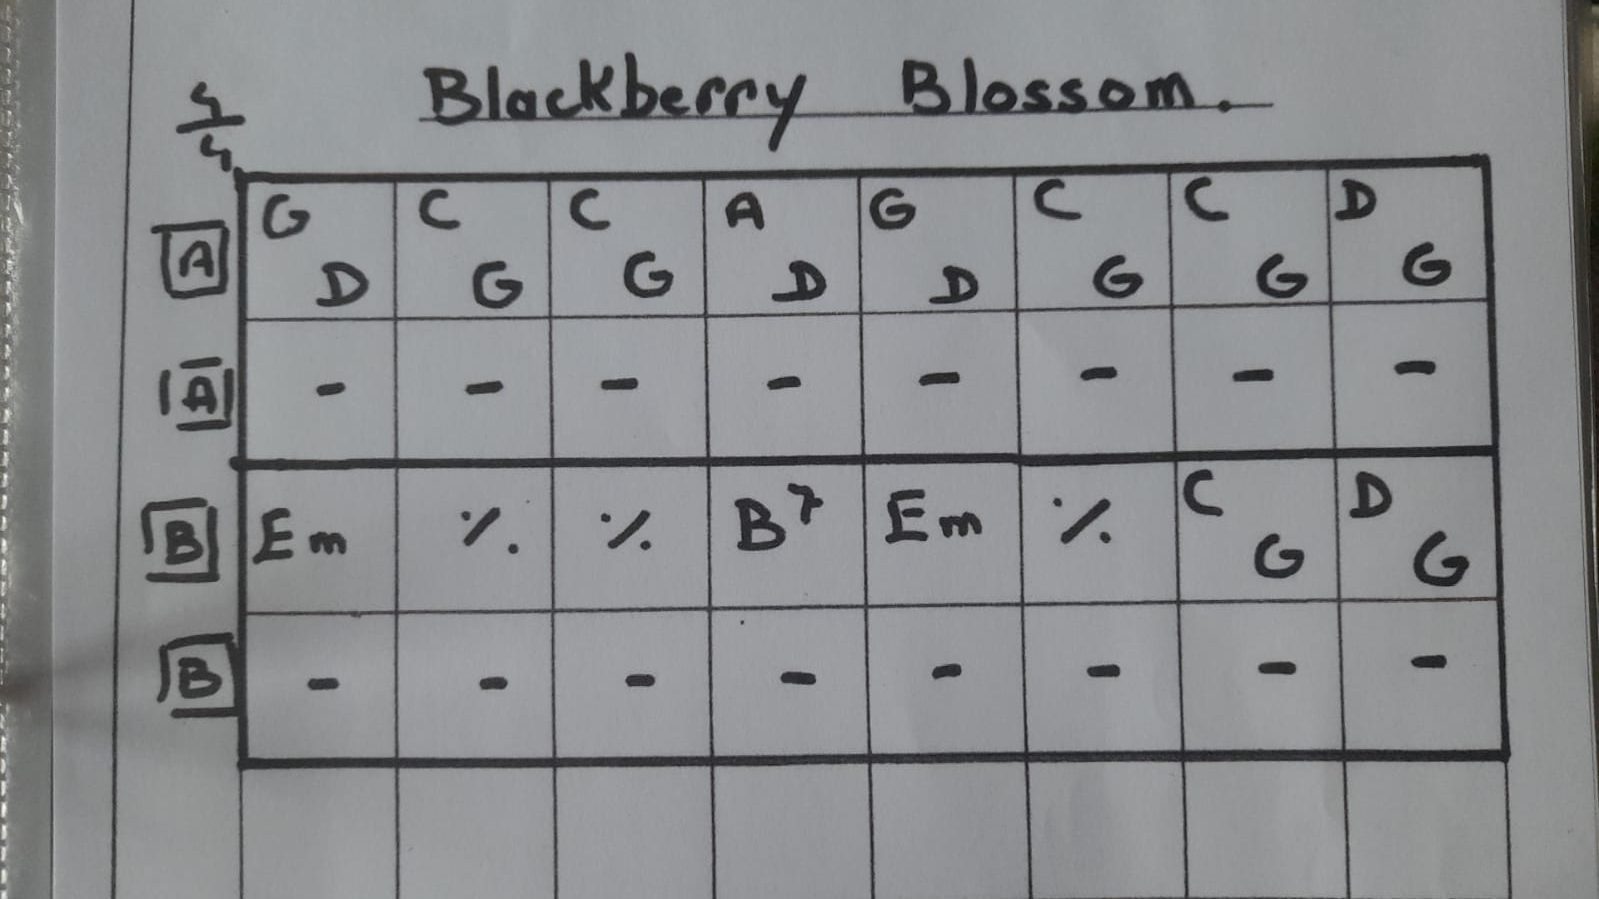 Blackberry Blossom.
4/4
A G D C G C G A D G D C G C G D G
A - - - - - - - -
B Em ٪ ٪ B7 Em ٪ C G D G
B - - - - - - - -